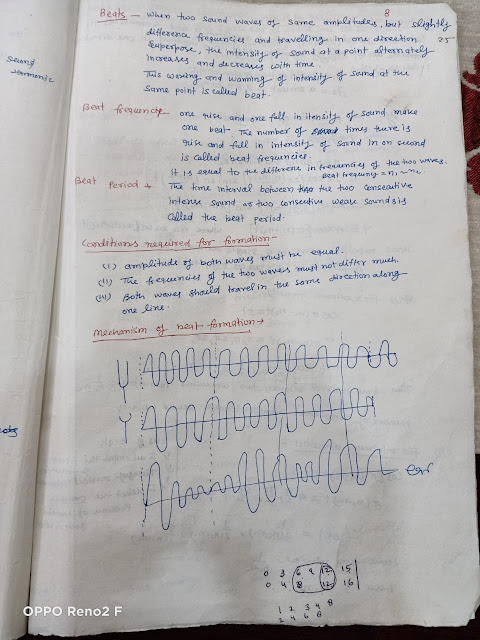 8
Beats — when two sound waves of same amplitudes, but slightly
difference frequencies and travelling in one direction 25
superpose, the intensity of sound at a point alternately
increases and decreases with time.
This waxing and wanning of intensity of sound at the
same point is called beat.
Beat frequency one rise and one fall in itensity of sound make
one beat The number of times there is
rise and fall in intensity of sound in on second
is called beat frequencies.
it is equal to the difference in frequencies of the two waves.
Beat frequency = n₁ ~ n₂
Beat Period → The time interval between the two consecutive
intense sound or two consecutive weak sounds is
called the beat period.
Conditions required for formation-
(i) amplitude of both waves must be equal.
(ii) The frequencies of the two waves must not differ much.
(iii) Both waves should travel in the same direction along
one line.
Mechanism of beat formation →
0 3 6 9 12 15
0 4 8 12 16
1 2 3 4 8
2 4 6 8
OPPO Reno2 F